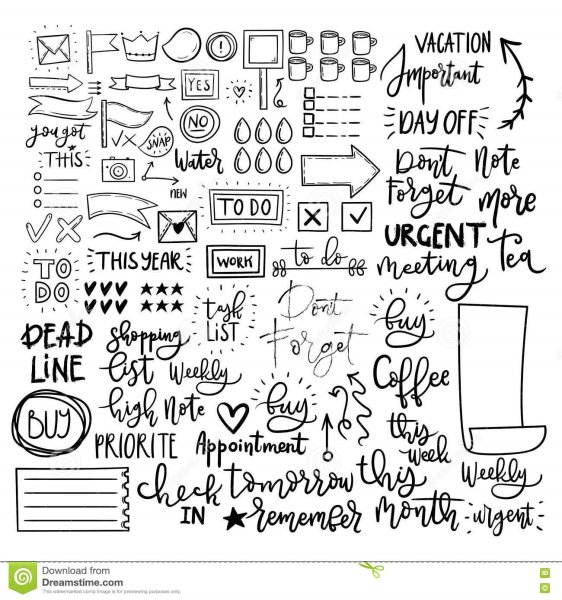 VACATION
Important
YES
you got
THIS
NO
DAY OFF
SNAP
Water
new
Don't
Forget
Note
more
TO DO
URGENT
Tea
meeting
TO
DO
THIS YEAR
WORK
to do
task
LIST
Don't
Forget
buy
DEAD
LINE
shopping
list
Weekly
Coffee
BUY
high Note
buy
this
week
PRIORITE
Appointment
Weekly
check
IN
tomorrow
remember
this
Month
urgent
Download from
Dreamstime.com
This watermarked comp image is for previewing purposes only.